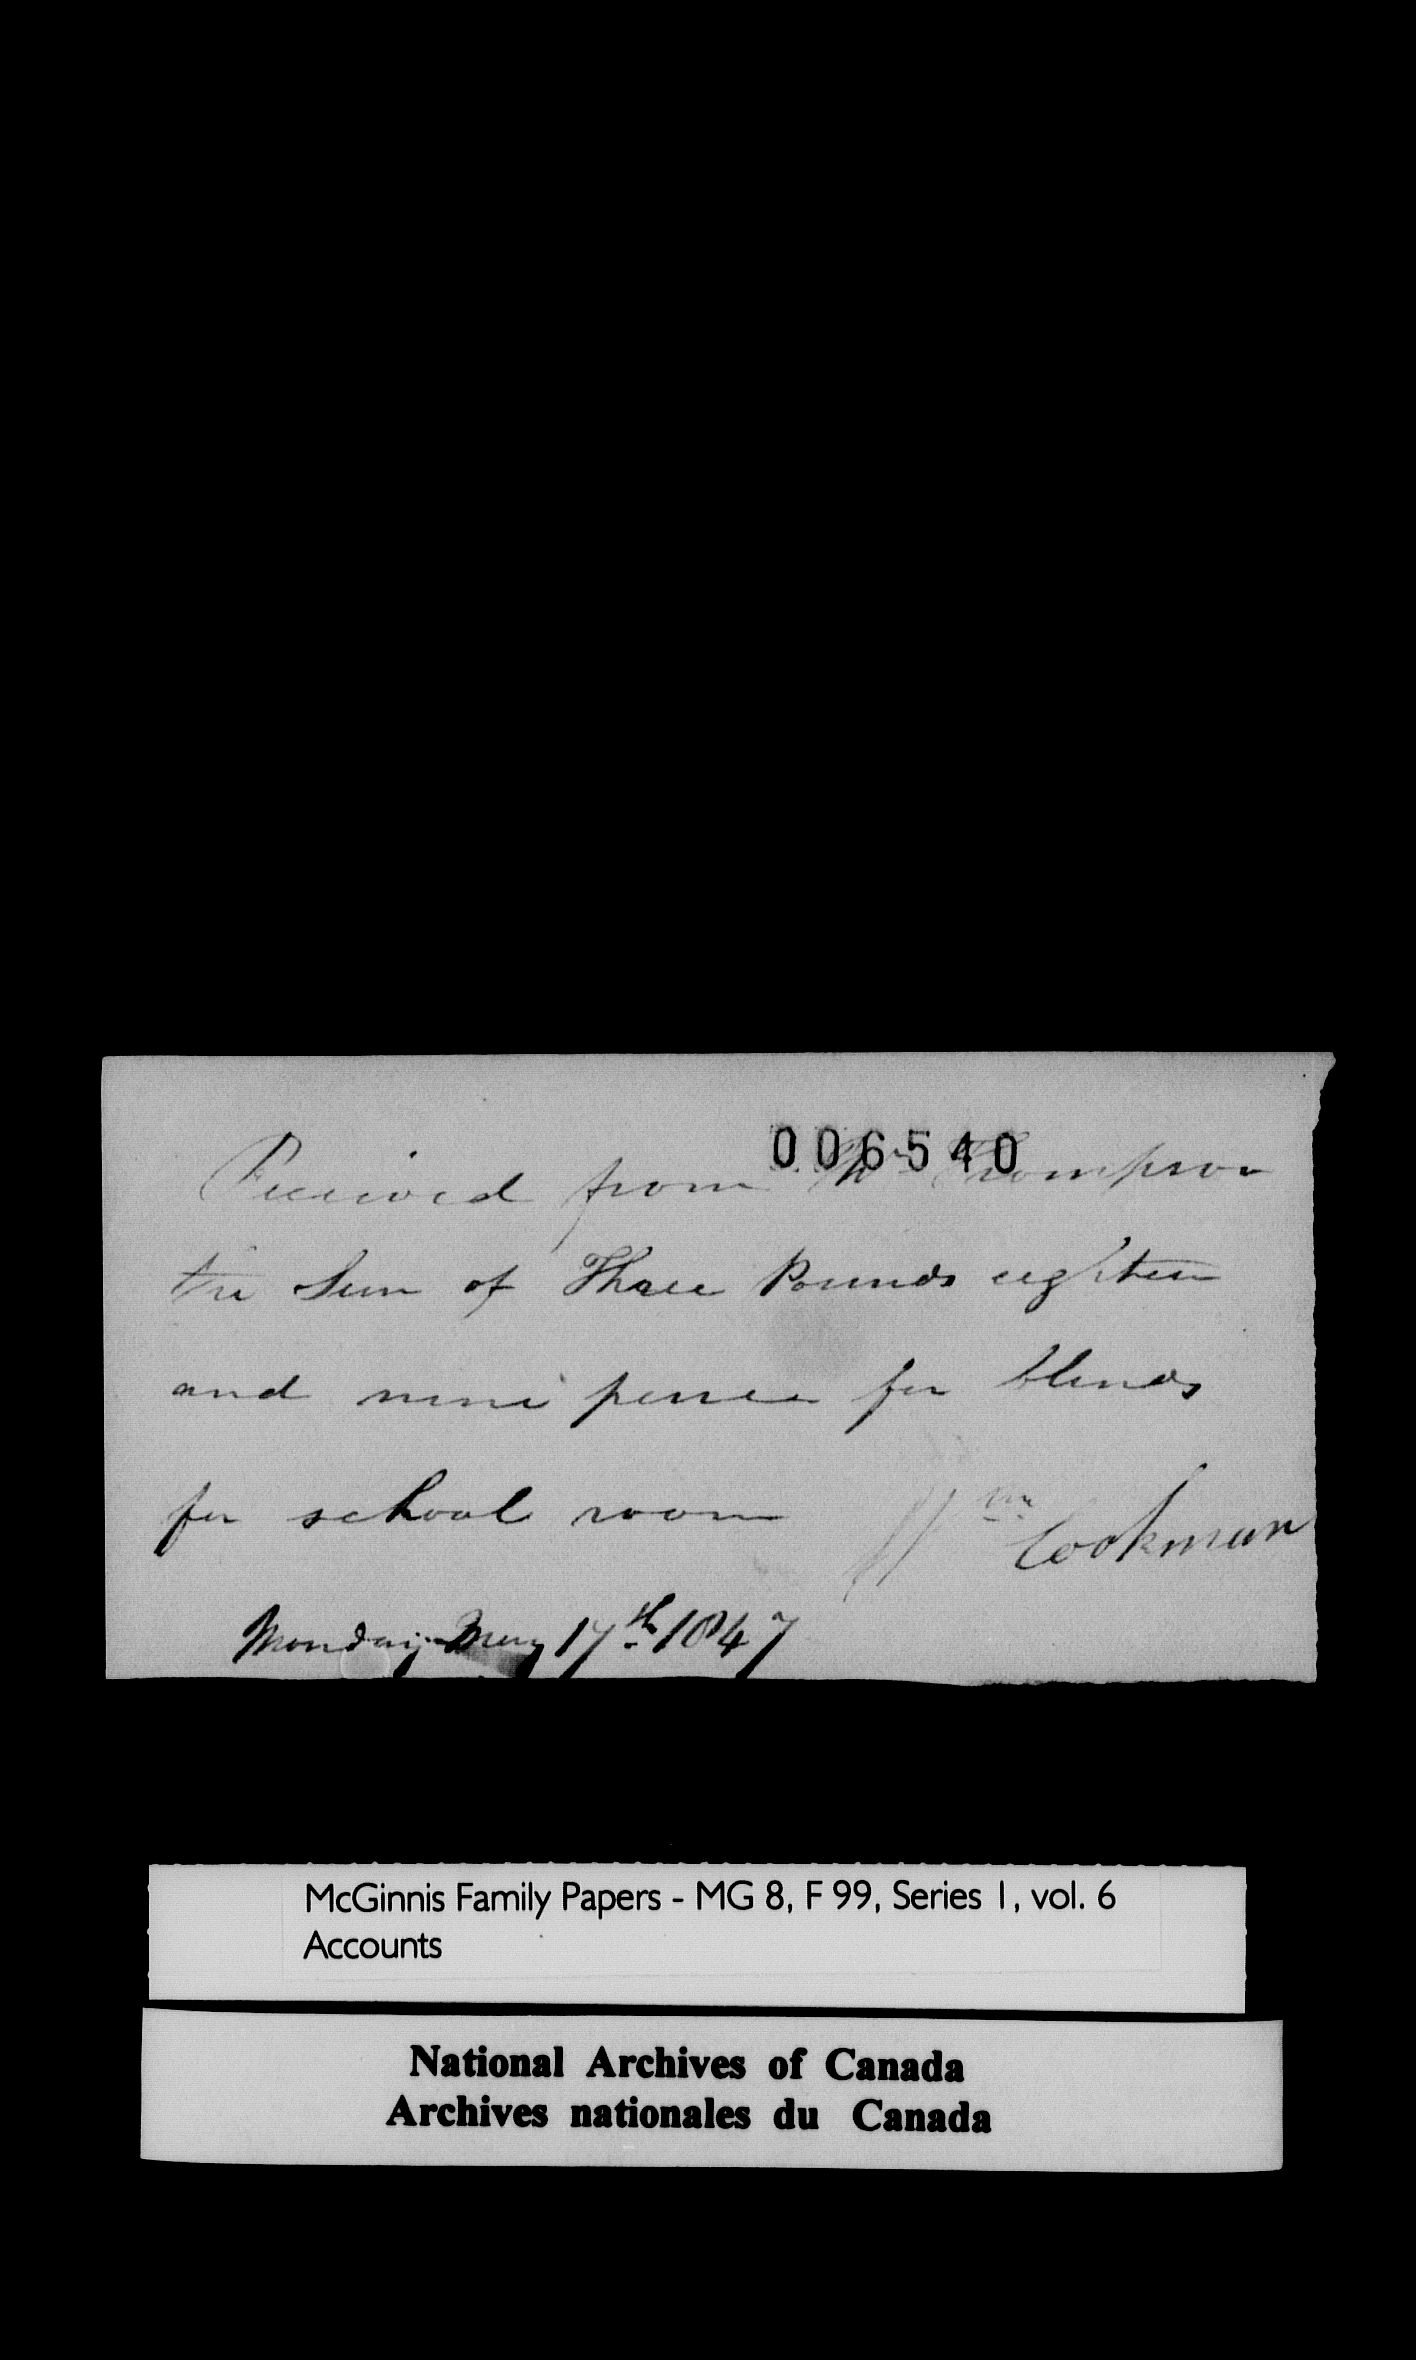 006540
Received from Mr Thompson
the Sum of Three Pounds eighteen
and nine pence for blinds
for school room Wm Cookman
Monday May 17th 1847
McGinnis Family Papers - MG 8, F 99, Series 1, vol. 6
Accounts
National Archives of Canada
Archives nationales du Canada